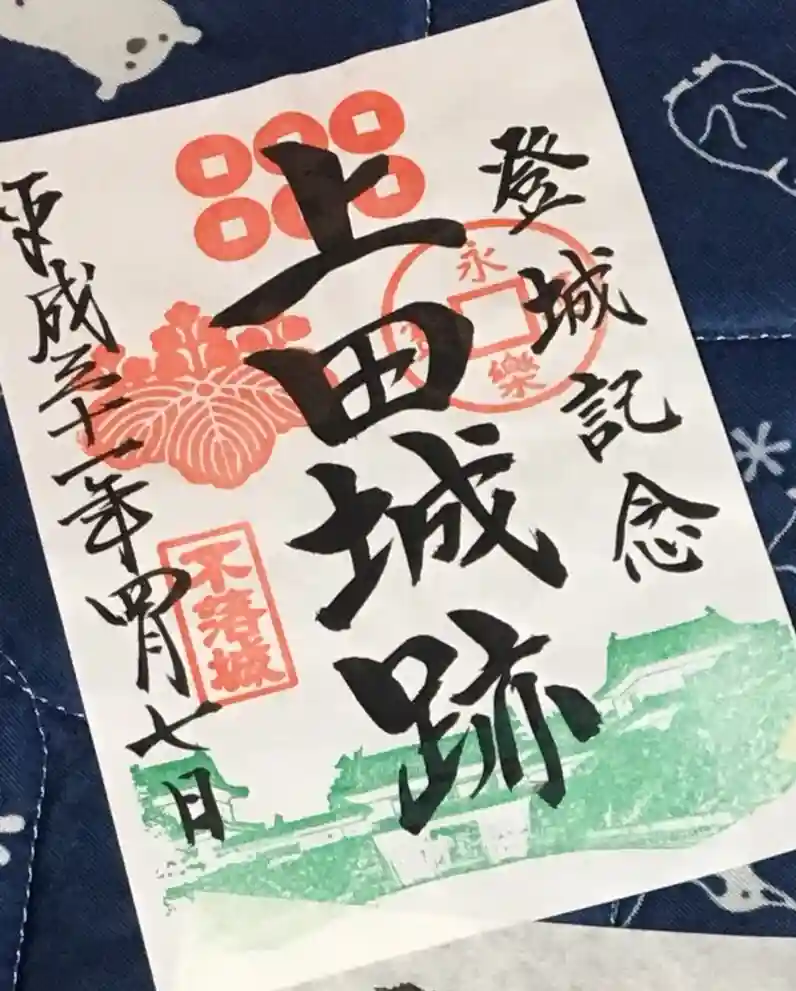 登城記念
永樂
上田城跡
不落城
平成三十一年四月七日